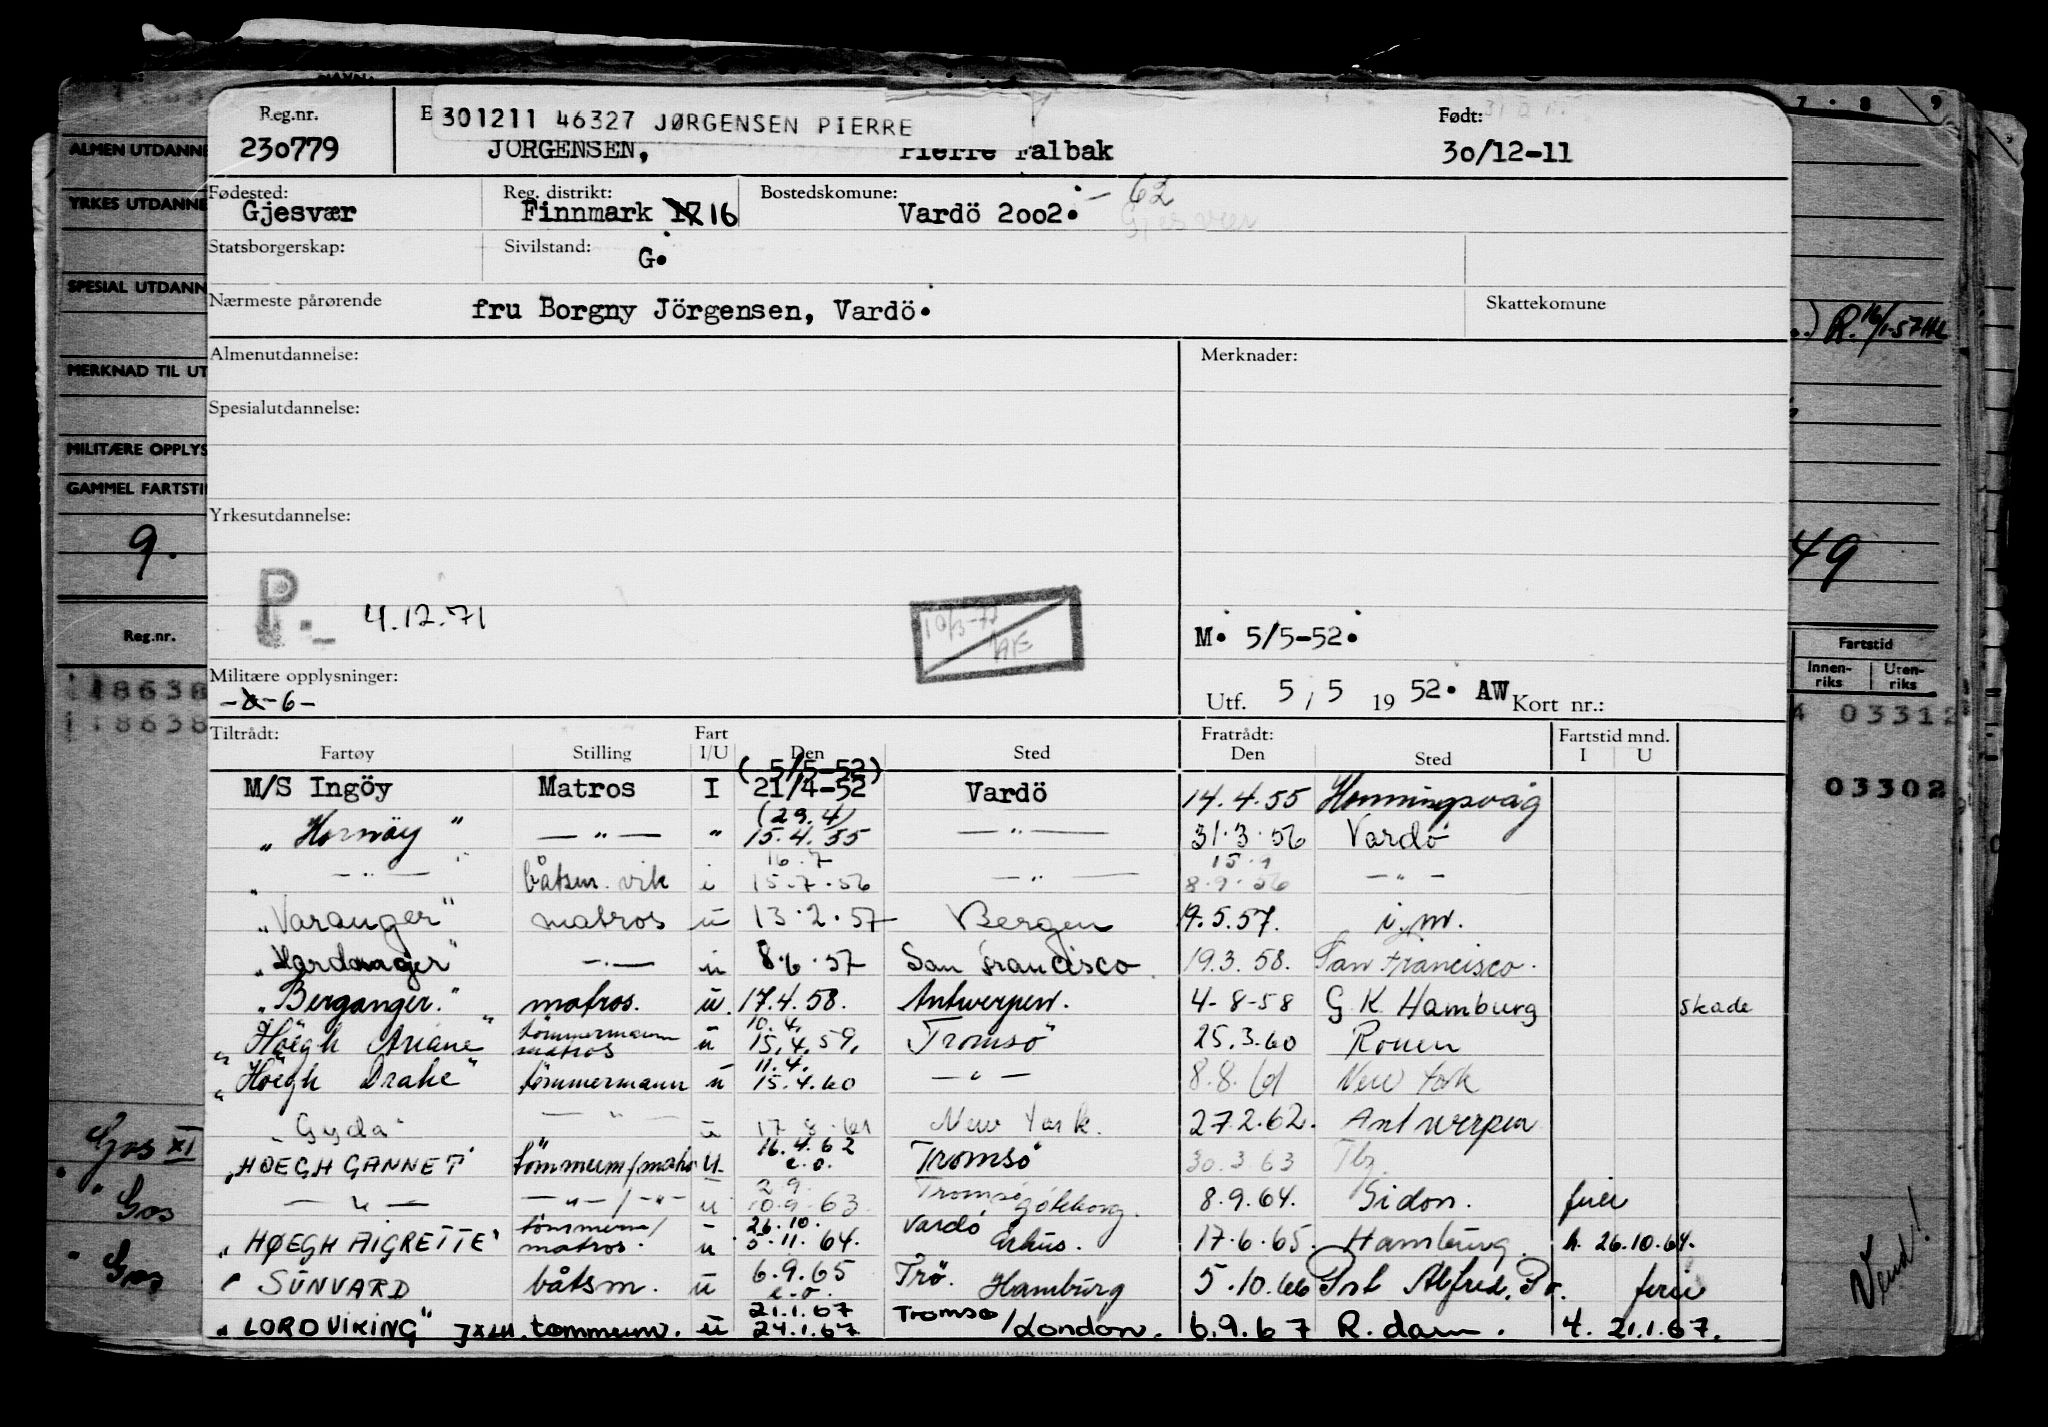 7 · 8 9
Reg.nr. Født:
301211 46327 JØRGENSEN PIERRE
230779 JÖRGENSEN, Pierre Falbak 30/12-11
ALMEN UTDANNE
Fødested: Reg. distrikt: Bostedskomune: - 62
YRKES UTDANNE
Gjesvær Finnmark 17 16 Vardö 2002. Gjesvær
Statsborgerskap: Sivilstand: G.
SPESIAL UTDANN
Nærmeste pårørende fru Borgny Jörgensen, Vardö. Skattekomune
R. 16/1-57
Almenutdannelse: Merknader:
MERKNAD TIL UT
Spesialutdannelse:
MILITÆRE OPPLYS
GAMMEL FARTSTI
Yrkesutdannelse:
9. 49
P. 4.12.71 10/3-72
M. 5/5-52.
Reg.nr. Fartstid
Innen-riks Uten-riks
Militære opplysninger:
- 6 -
Utf. 5 / 5 19 52. AW Kort nr.:
18638 03312
18638 03302
Tiltrådt: Fart Fratrådt: Fartstid mnd.
Fartøy Stilling I/U Den Sted Den Sted I U
(5/5-52)
M/S Ingöy Matros I 21/4-52 Vardö 14.4.55 Honningsvåg
(29.4)
" Hornöy " — " — " 15.4.55 — " — 31.3.56 Vardö
16.7
" — " — båtsm. vik i 15.7.56 — " — 8.9.56 — " —
"Varanger" matros u 13.2.57 Bergen 19.5.57. i.m.
"Hardanger" — . — u 8.6.57 San Francisco 19.3.58. San Francisco.
"Berganger." matros. u. 17.4.58. Antwerpen. 4-8-58 G K Hamburg skade
10.4.
" Höegh Ariane " tömmermann matros u 15.4.59. Tromsö 25.3.60 Rouen
11.4.
" Höegh Drake " tömmermann u 15.4.60 — " — 8.8.61 New York
"Gyda" — " — u 17.8.61 New York. 27.2.62. Antwerpen
Gos XI
16.4.62
"HØEGH GANNET" tömmerm/matro U e.o. Tromsö 30.3.63 Tbg.
2.9
— " — — " — / — " — u 10.9.63 Tromsö Göteborg. 8.9.64. Sidon. ferie
" Gos
26.10.
" HØEGH AIGRETTE" tömmerm/ matros. u 5.11.64. Vardö Århus. 17.6.65. Hamburg. h. 26.10.64.
" Gos
" SUNVARD båtsm. u 6.9.65 e.o. Trö. Hamburg 5.10.66 Port Alfred, P.. ferie
21.1.67
" LORD VIKING" tömmerm. u 24.1.67 Tromsö /London. 6.9.67 R.dam. 4. 21.1.67.
Vend!